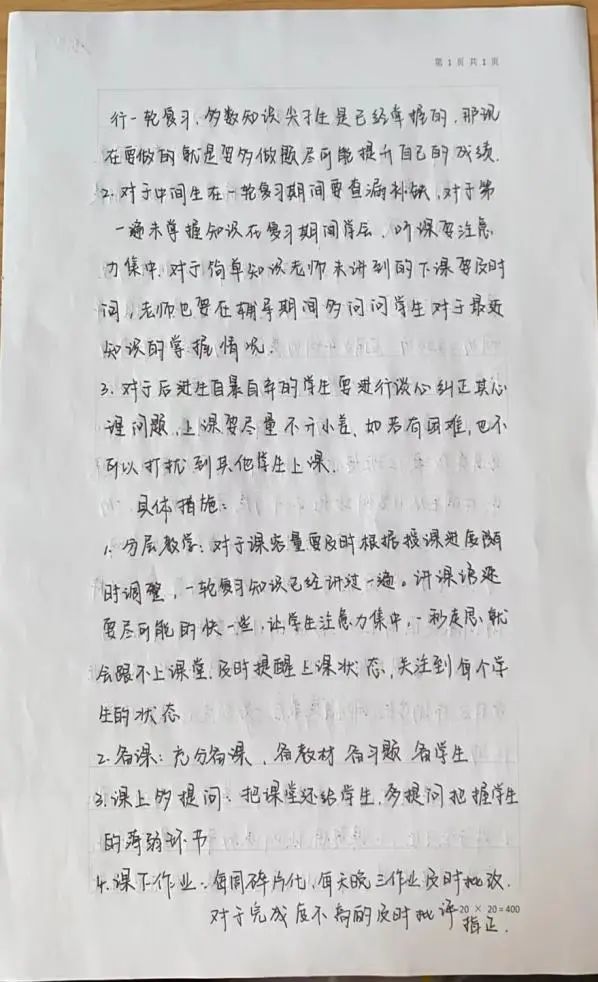 第 1 页 共 1 页
行一轮复习，多数知识尖子生是已经掌握的，那现
在要做的就是要多做题尽可能提升自己的成绩.
2. 对于中间生在一轮复习期间要查漏补缺，对于第
一遍未掌握知识在复习期间学会，听课要注意
力集中，对于简单知识老师未讲到的下课要及时
问，老师也要在辅导期间多问问学生对于最近
知识的掌握情况.
3. 对于后进生自暴自弃的学生要进行谈心纠正其心
理问题，上课要尽量不开小差，如若有困难，也不
可以打扰到其他学生上课.
具体措施：
1. 分层教学：对于课容量要及时根据授课进度随
时调整，一轮复习知识已经讲过一遍。讲课语速
要尽可能的快一些，让学生注意力集中，一秒走思就
会跟不上课堂，及时提醒上课状态，关注到每个学
生的状态
2. 备课：充分备课、备教材 备习题 备学生
3. 课上多提问：把课堂还给学生，多提问把握学生
的薄弱环节
4. 课下作业：每周碎片化，每天晚三作业及时批改.
对于完成度不高的及时批评指正.
20 × 20=400